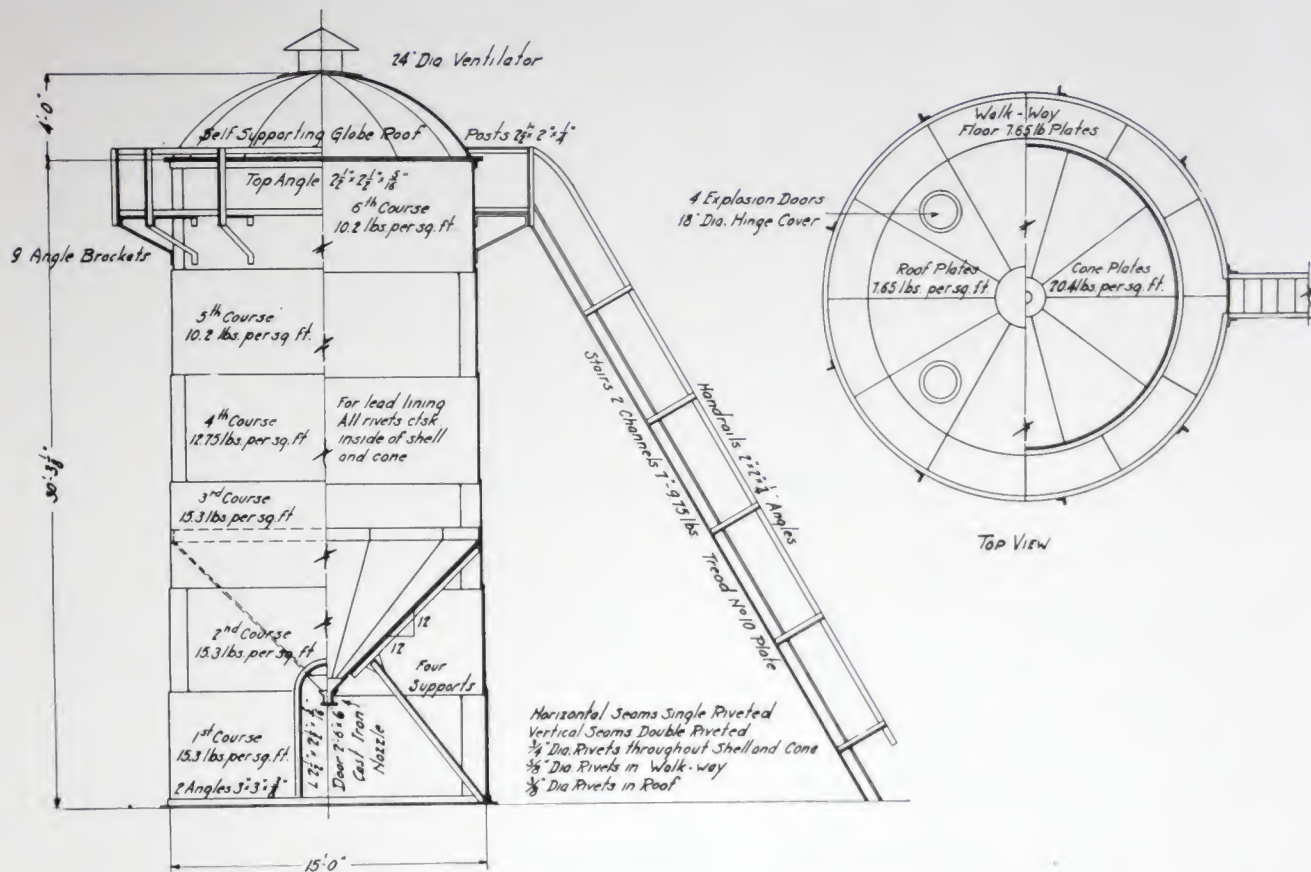 24" Dia Ventilator
4'-0"
Self Supporting Globe Roof
Posts 2½" × 2" × ¼"
Top Angle 2½" × 2½" × 5/16"
6th Course
10.2 lbs. per sq. ft.
9 Angle Brackets
5th Course
10.2 lbs. per sq. ft.
4th Course
12.75 lbs. per sq. ft
For lead lining
All rivets ctsk
inside of shell
and cone
3rd Course
15.3 lbs per sq. ft
2nd Course
15.3 lbs. per sq. ft
12
12
Four
Supports
1st Course
15.3 lbs per sq. ft.
2 Angles 3" × 3" ×
Door 2'-6" × 6'
Cast Iron
Nozzle
15'-0"
Stairs 2 Channels 7" - 9.75 lbs. Tread No 10 Plate
Handrails 2" × 2" × ¼" Angles
Horizontal Seams Single Riveted
Vertical Seams Double Riveted
¾" Dia. Rivets throughout Shell and Cone
Dia. Rivets in Walk-way
Dia Rivets in Roof
Walk-Way
Floor 7.65 lb Plates
4 Explosion Doors
18" Dia. Hinge Cover
Roof Plates
7.65 lbs. per sq. ft.
Cone Plates
20.4 lbs. per sq. ft.
TOP VIEW